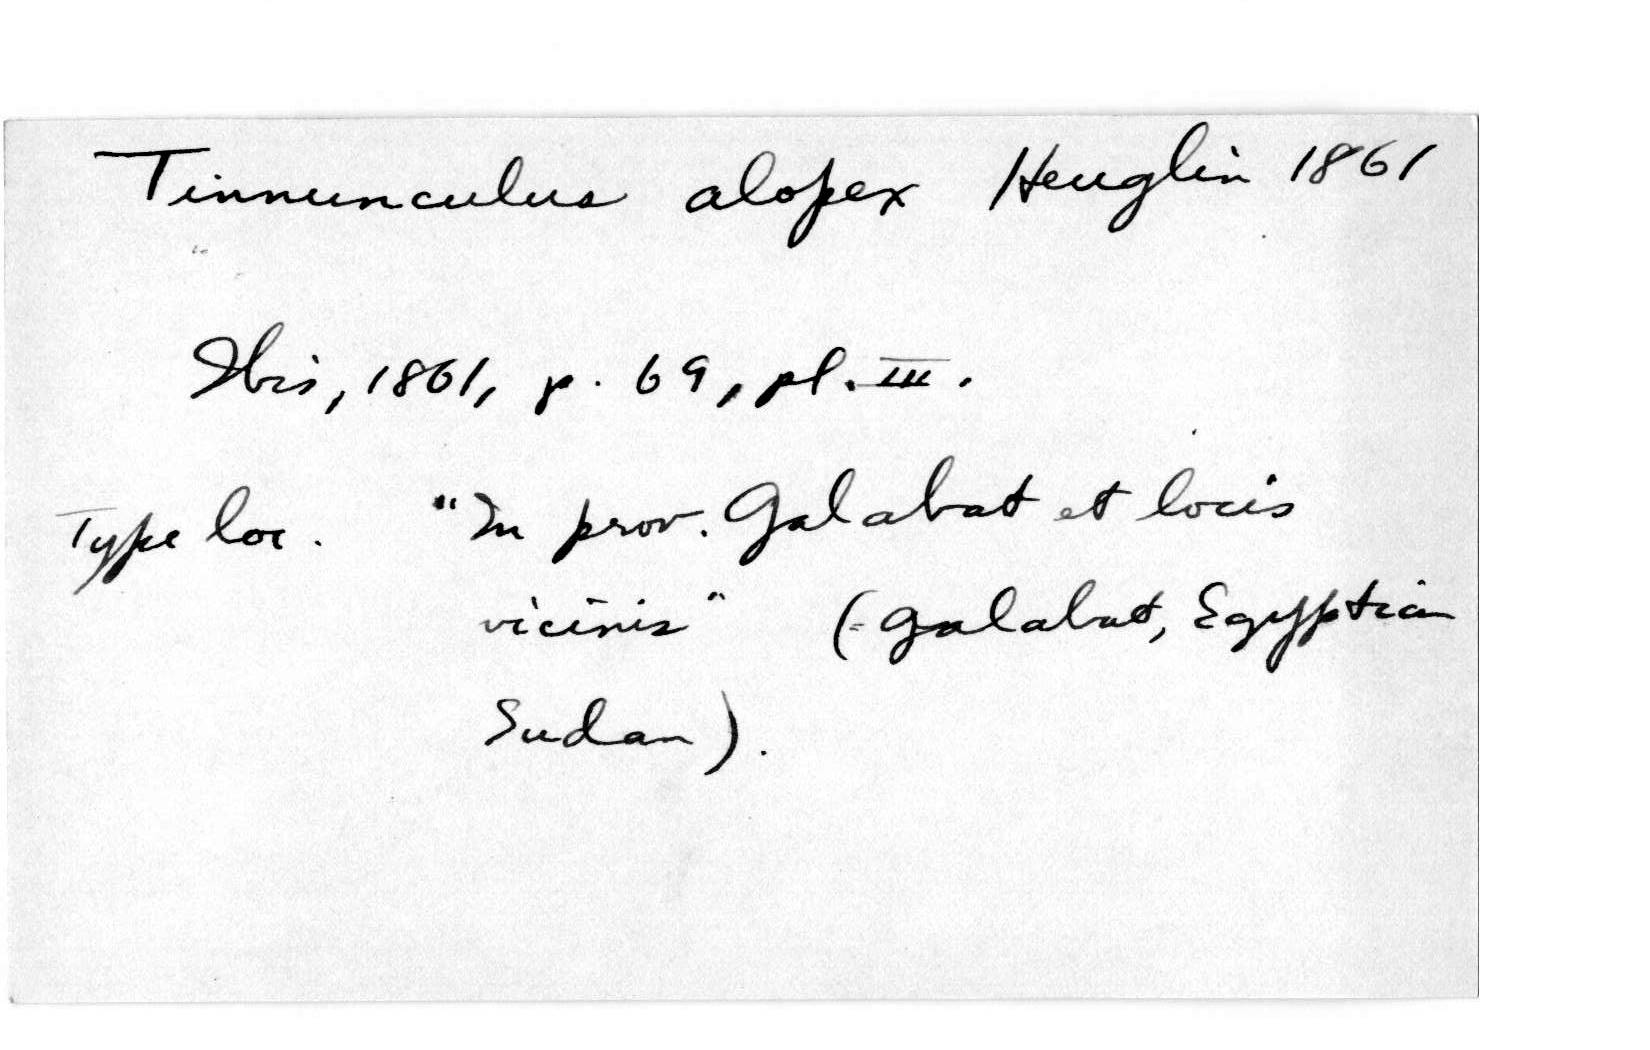 Tinnunculus alopex Heuglin 1861
Ibis, 1861, p. 69, pl. III.
Type loc. "In prov. Galabat et locis
vicinis" (= Galabat, Egyptian
Sudan).